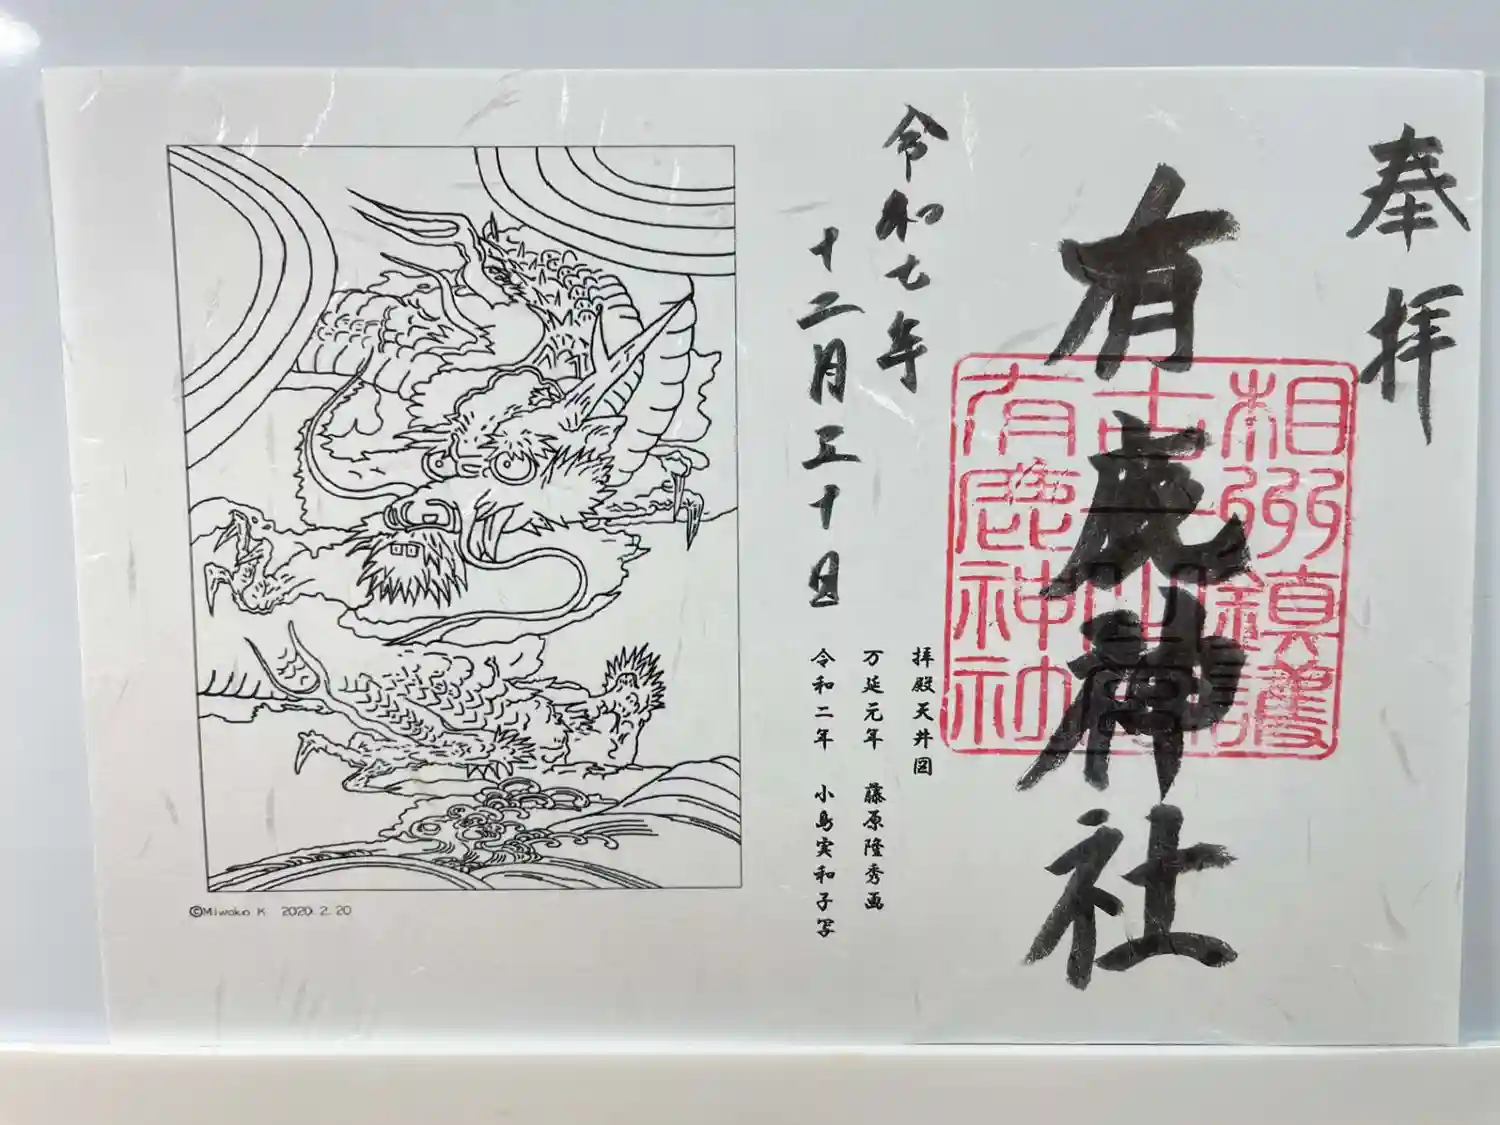 奉拝
有鹿神社
相州鎮護
有鹿神社
令和七年
十二月三十日
拝殿天井図
万延元年 藤原隆秀画
令和二年 小島実和子写
©Miwako K 2020.2.20